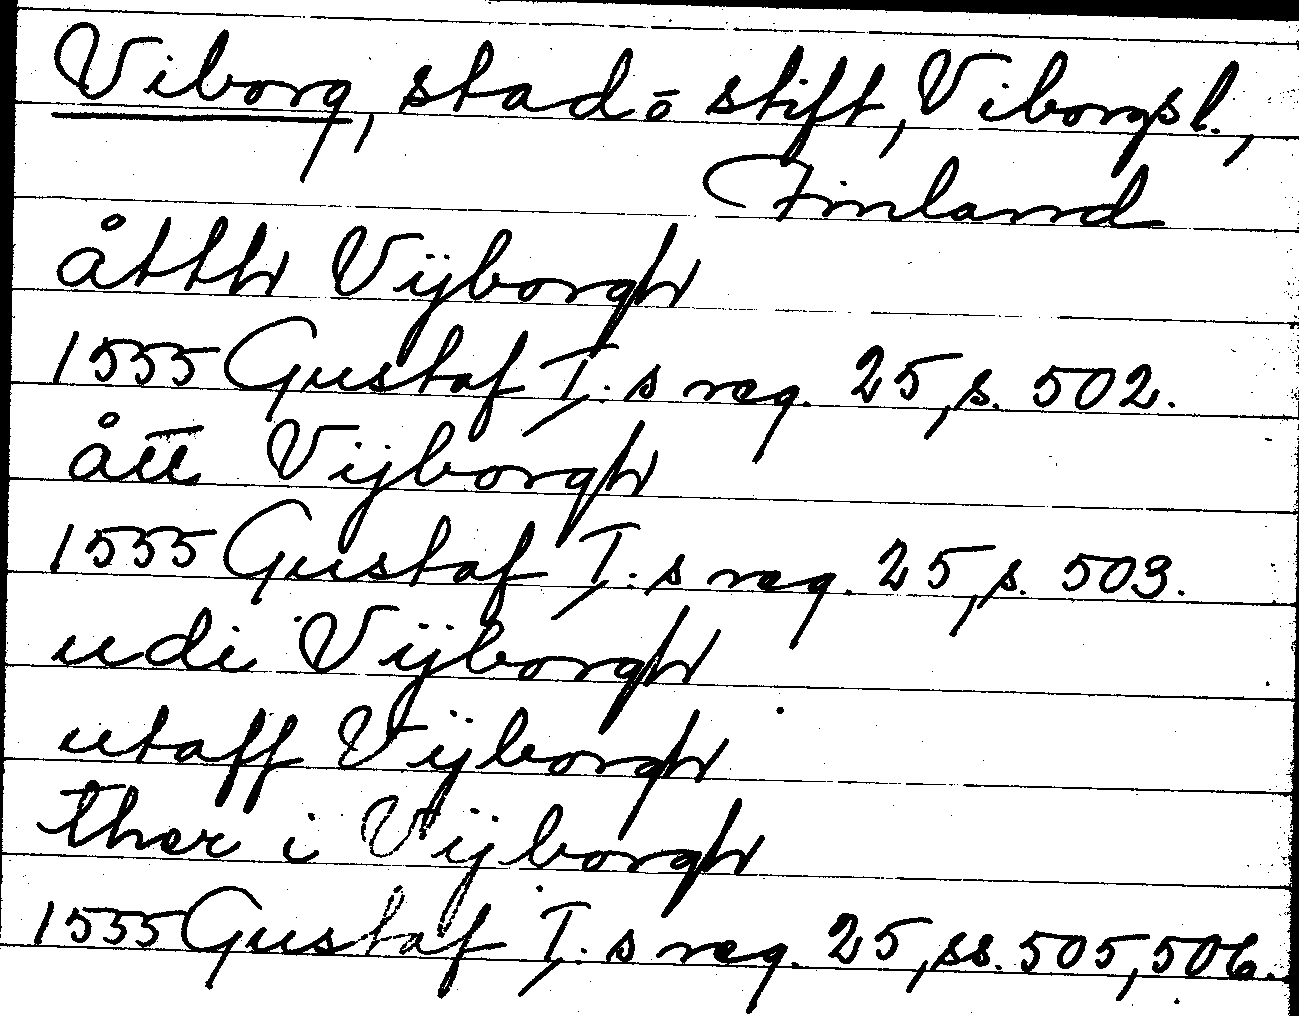 Viborg, stad o stift, Viborgsl.,
Finland
åthh Vijborgh
1555 Gustaf I:s reg. 25, s. 502.
ått Vijborgh
1555 Gustaf I:s reg. 25, s. 503.
udi Vijborgh
utaff Vijborgh
ther i Vijborgh
1555 Gustaf I:s reg. 25, ss. 505, 506.